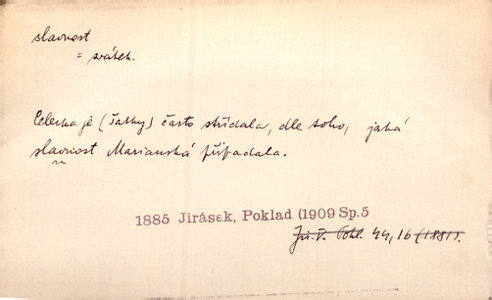 slavnost
= svátek.
je (šatky) často střídala, dle toho, jaká
slavnost Marianská připadala.
1885 Jirásek, Poklad (1909 Sp.5
44, 16 (1881).